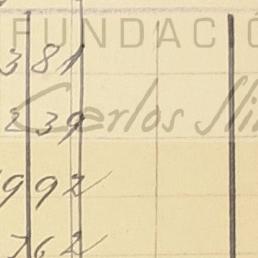 FUNDACIÓ
381
239
Carlos Sli
992
762